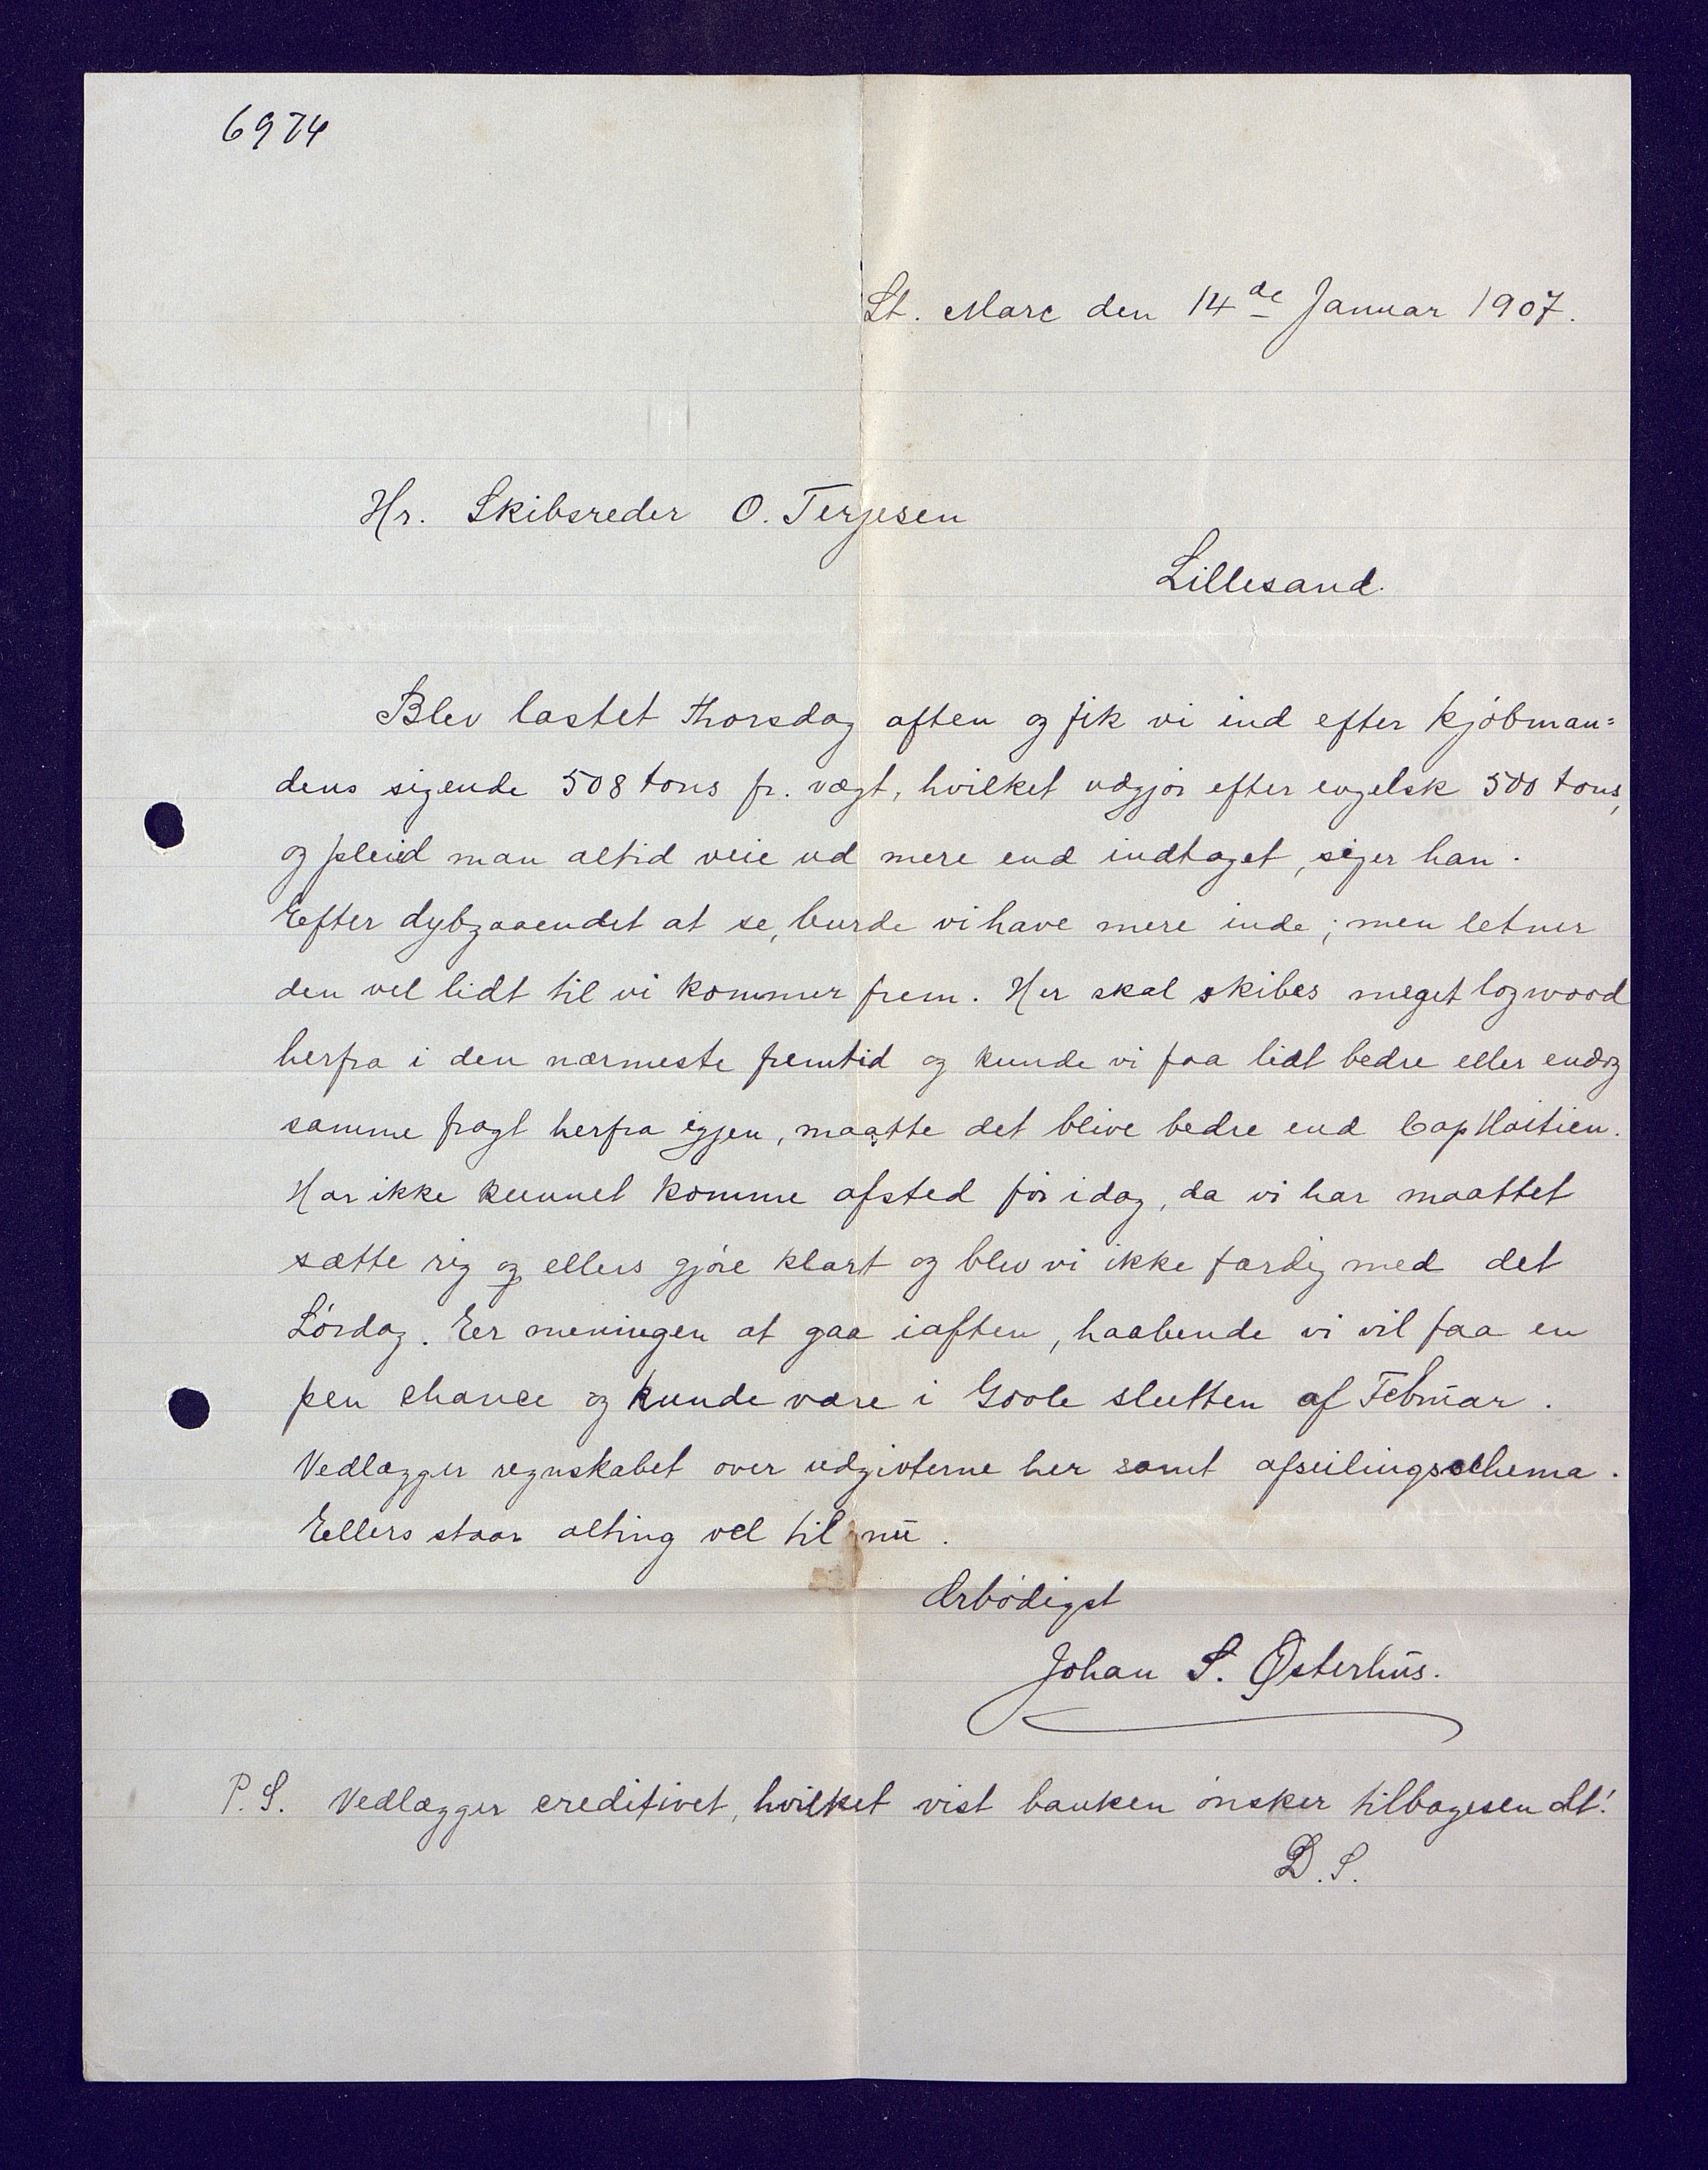 6974
St. Marc den 14de Januar 1907.
Hr. Skibsreder O. Terjesen
Lillesand.
Blev lastet Thorsdag aften og fik vi ind efter kjöbman=
dens sigende 508 tons fr. vægt, hvilket udgjör efter engelsk 500 tons,
og pleied man altid veie ud mere end indtaget, siger han.
Efter dybgaaendet at se, burde vi have mere inde; men letner
den vel lidt til vi kommer frem. Her skal skibes meget logwood
herfra i den nærmeste fremtid og kunde vi faa lidt bedre eller endog
samme fragt herfra igjen, maatte det blive bedre end Cap Haitien.
Har ikke kunnet komme afsted för idag, da vi har maattet
sætte rig og ellers gjöre klart og blev vi ikke færdig med det
Lördag. Er meningen at gaa iaften, haabende vi vil faa en
pen chance og kunde være i Goole slutten af Februar.
Vedlægger regnskabet over udgivterne her samt afseilingsschema.
Ellers staar alting vel til nu.
Ærbödigst
Johan S. Østerhus.
P.S. Vedlægger creditivet, hvilket vist banken önsker tilbagesendt!
D.S.